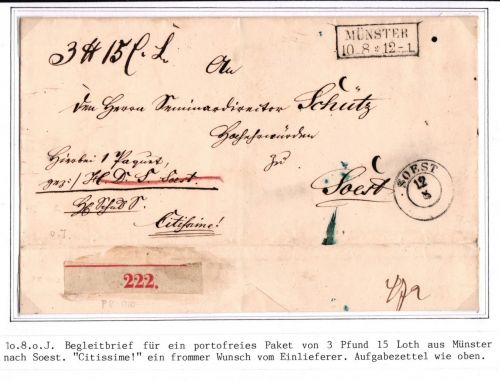 3 ℔ 15 L.
MÜNSTER
10 8 * 12-1
An
den Herrn Seminardirector Schütz
Hochehrwürden
Hierbei 1 Paquet,
zu
gez: H. D. S. Soest.
Soest
SOEST
12
8
Citissime!
222.
10.8.o.J. Begleitbrief für ein portofreies Paket von 3 Pfund 15 Loth aus Münster
nach Soest. "Citissime!" ein frommer Wunsch vom Einlieferer. Aufgabezettel wie oben.